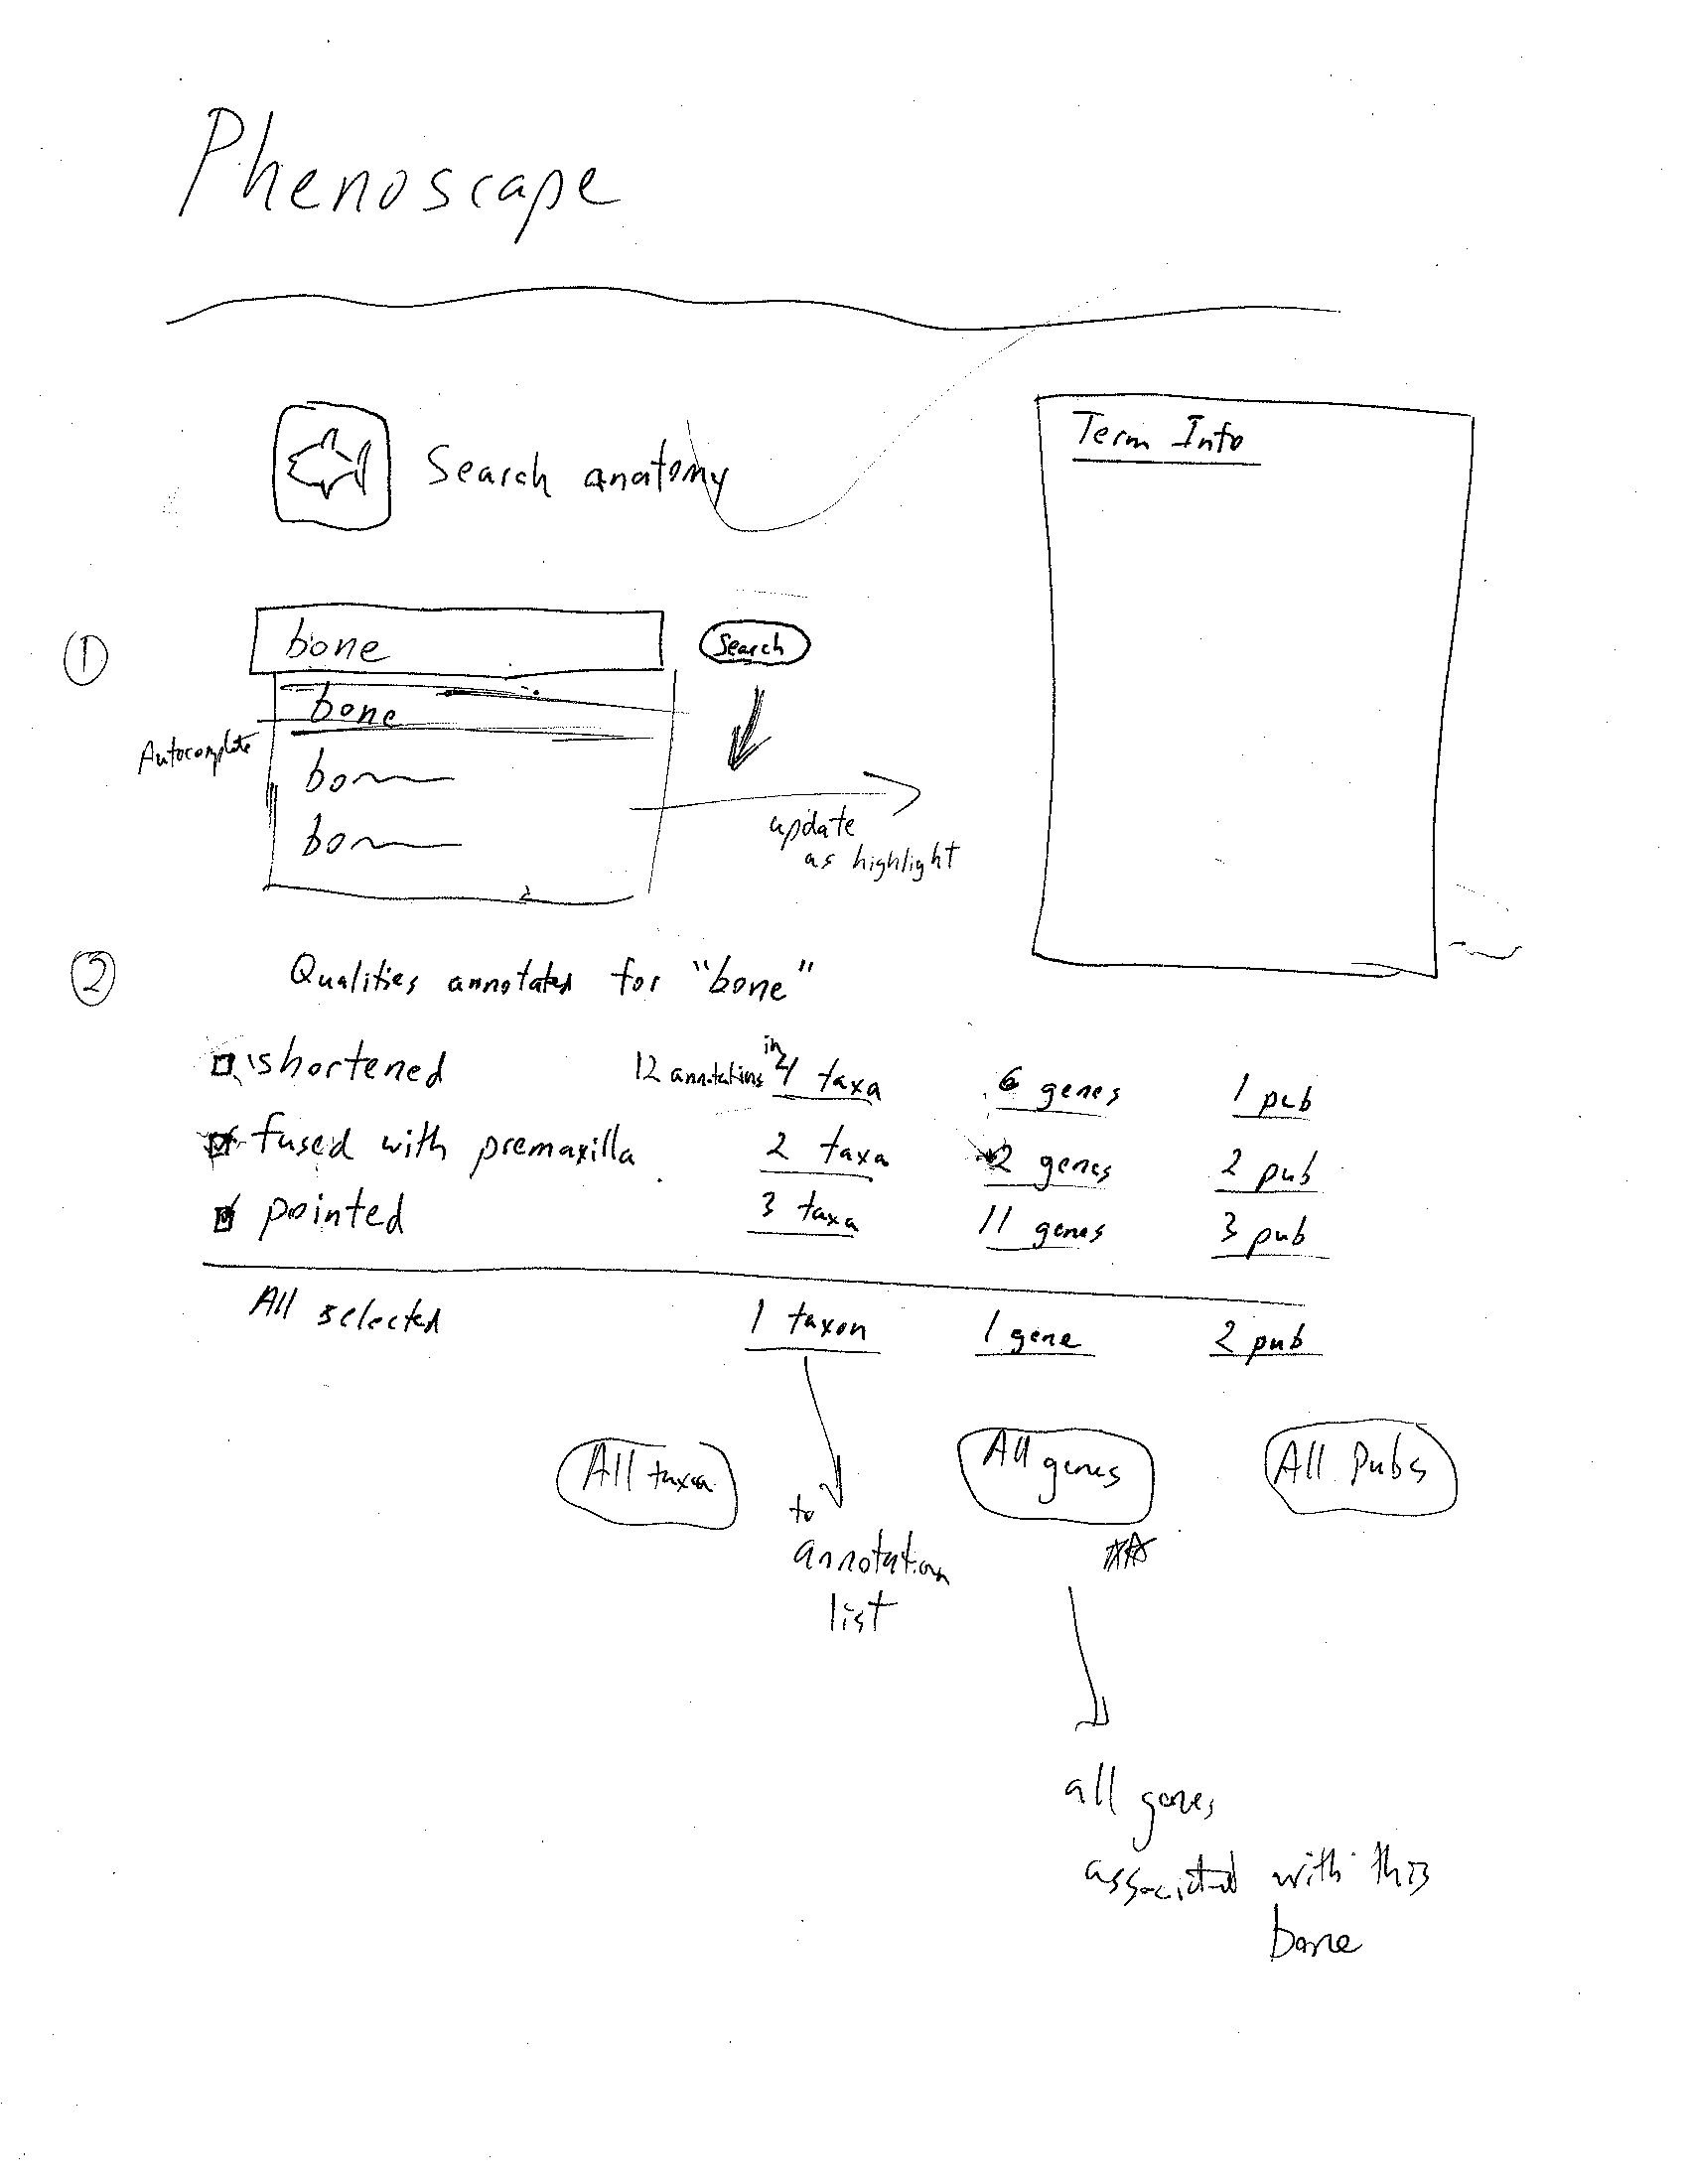 Phenoscape
Search anatomy
Term Info
1
bone
Search
bone
Autocomplete
bo
bo
update
as highlight
2
Qualities annotated for "bone"
shortened 12 annotations in 4 taxa 6 genes 1 pub
fused with premaxilla 2 taxa 2 genes 2 pub
pointed 3 taxa 11 genes 3 pub
All selected 1 taxon 1 gene 2 pub
All taxa All genes All Pubs
to
annotation
list
all genes
associated with this
bone